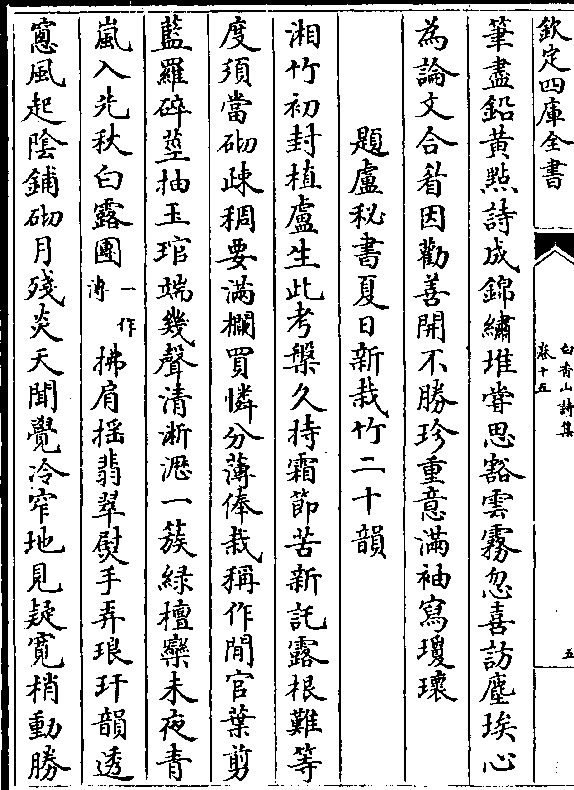 欽定四庫全書
白香山詩集
卷十五
五
筆盡鉛黄㸃詩成錦繡堆嘗思豁雲霧忽喜訪塵埃心
為論文合㸔因勸善開不勝珍重意滿袖寫瓊瓌
題盧秘書夏日新栽竹二十韻
湘竹初封植盧生此考槃久持霜節苦新託露根難等
度須當砌疎稠要滿欄買憐分薄俸栽稱作閒官葉剪
藍羅碎莖抽玉琯端幾聲清淅瀝一簇緑檀欒未夜青
嵐入先秋白露團一作漙拂肩揺翡翠熨手弄琅玕韻透
窻風起陰鋪砌月殘炎天聞覺冷窄地見疑寛梢動勝